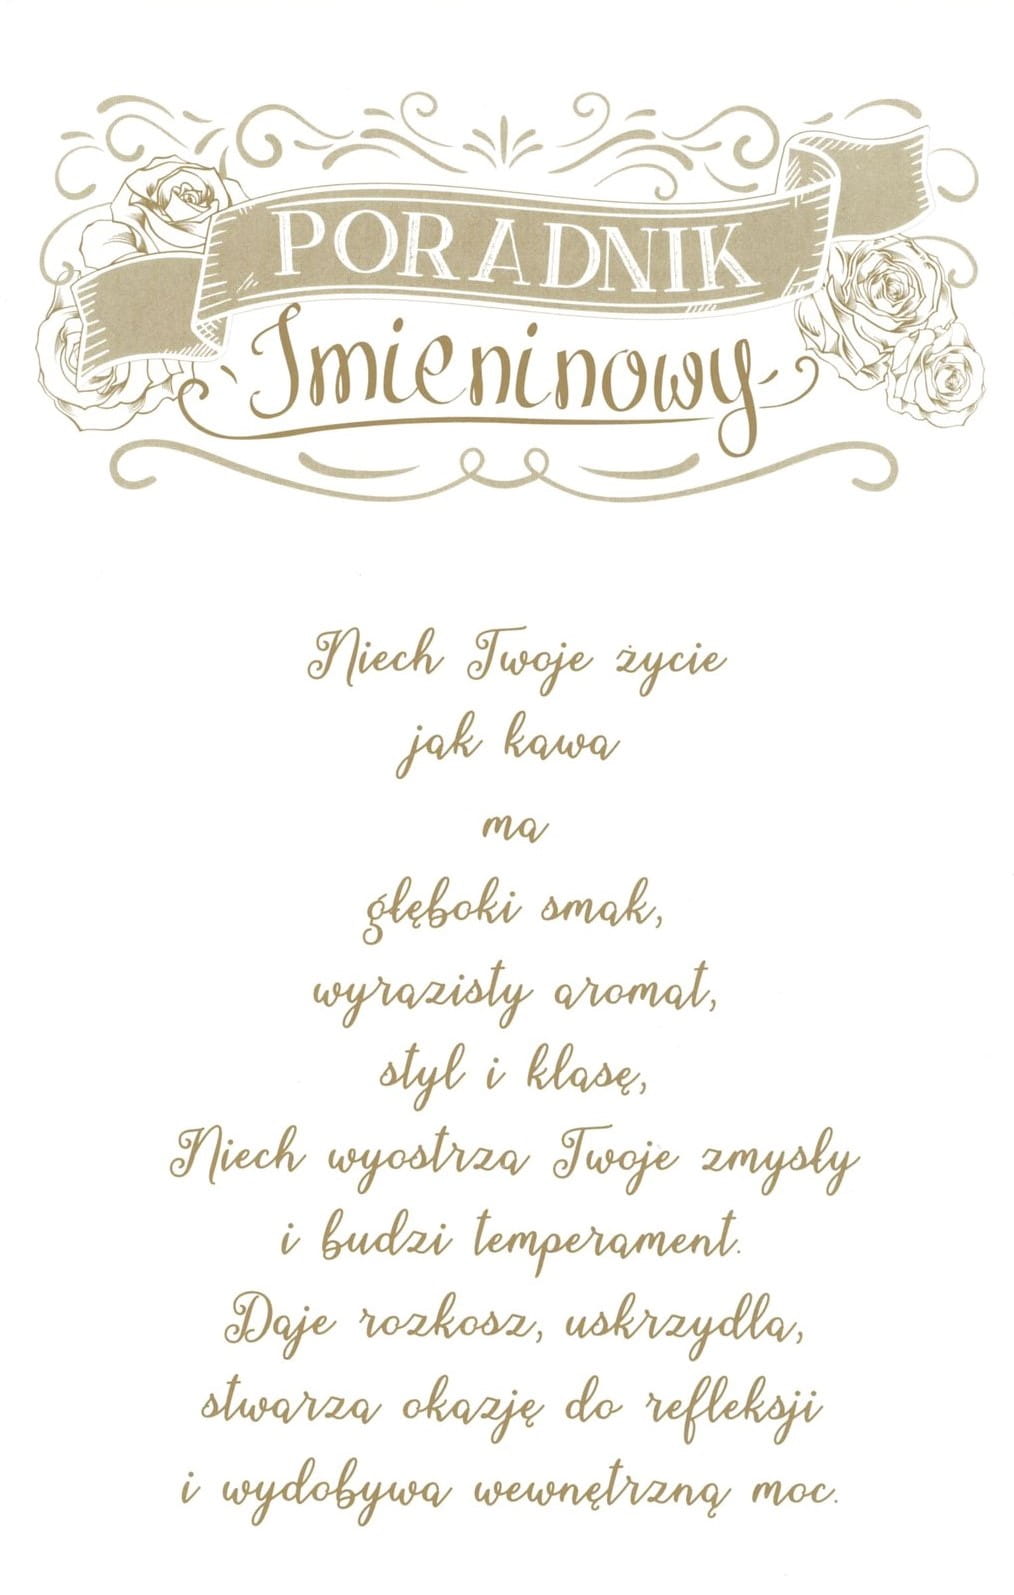 PORADNIK
Imieninowy
Niech Twoje życie
jak kawa
ma
głęboki smak,
wyrazisty aromat,
styl i klasę,
Niech wyostrza Twoje zmysły
i budzi temperament.
Daje rozkosz, uskrzydla,
stwarza okazję do refleksji
i wydobywa wewnętrzną moc.